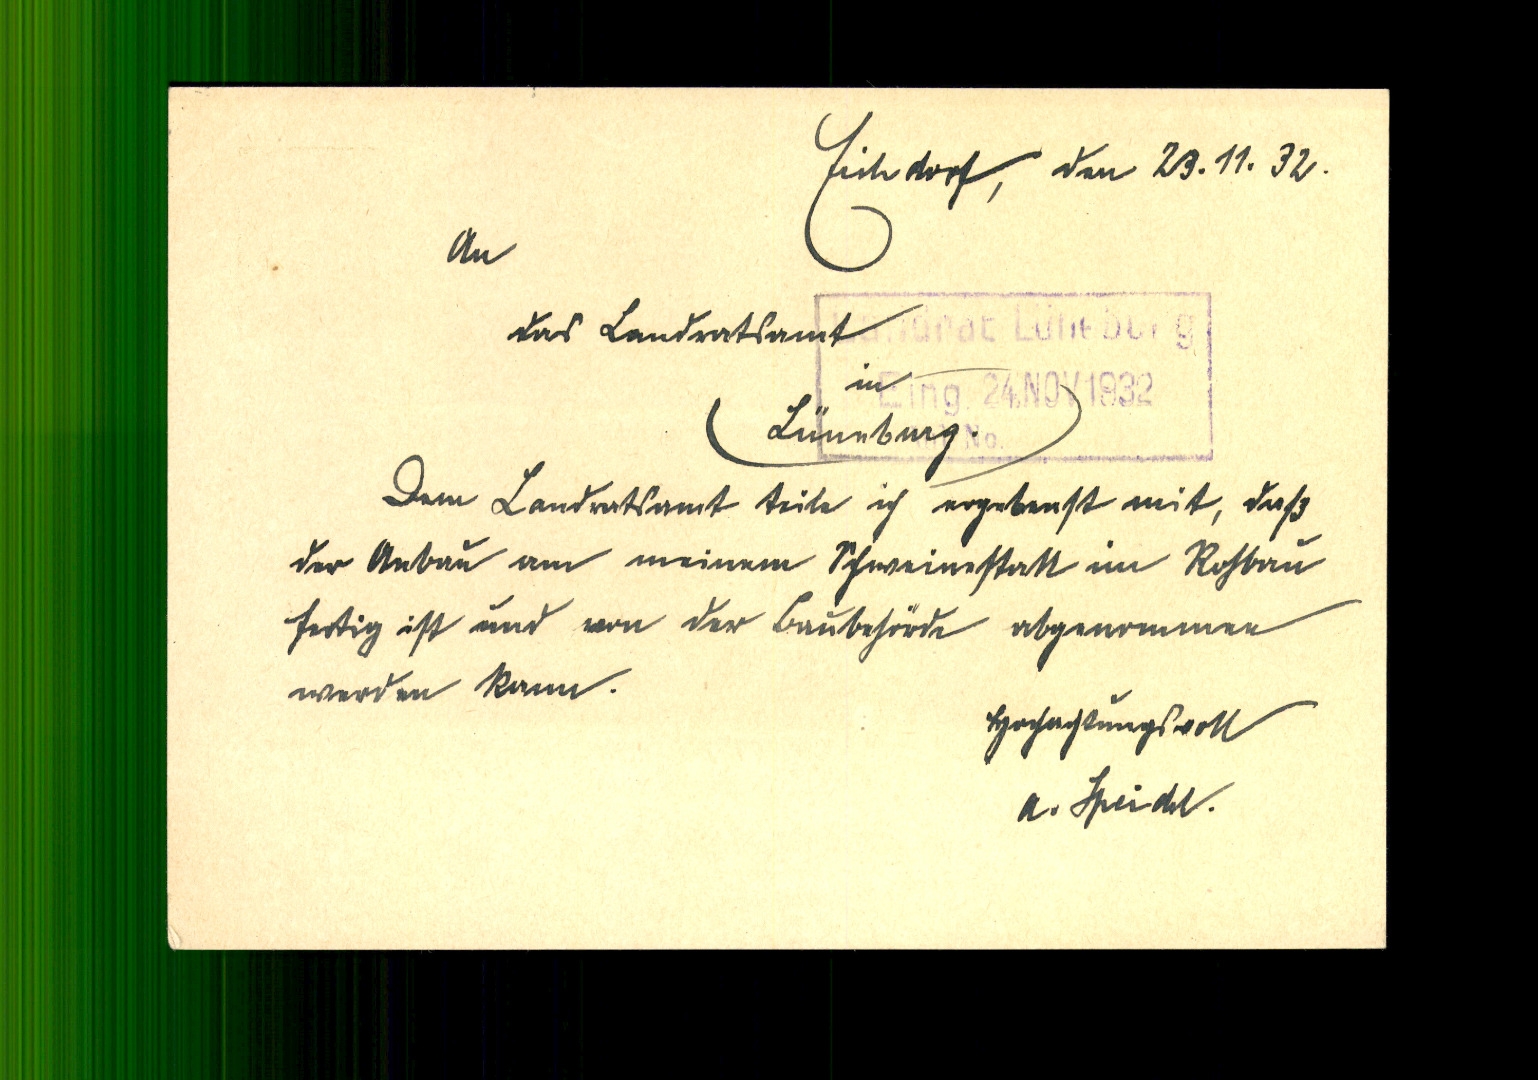 Eichdorf, den 23.11.32.
An
das Landratsamt
in
Lüneburg.
Landrat Lüneburg
Eing. 24.NOV.1932
No.
Dem Landratsamt teile ich ergebenst mit, daß
der Anbau am meinem Schweinestall im Rohbau
fertig ist und von der Baubehörde abgenommen
werden kann.
Hochachtungsvoll
A. Speidel.